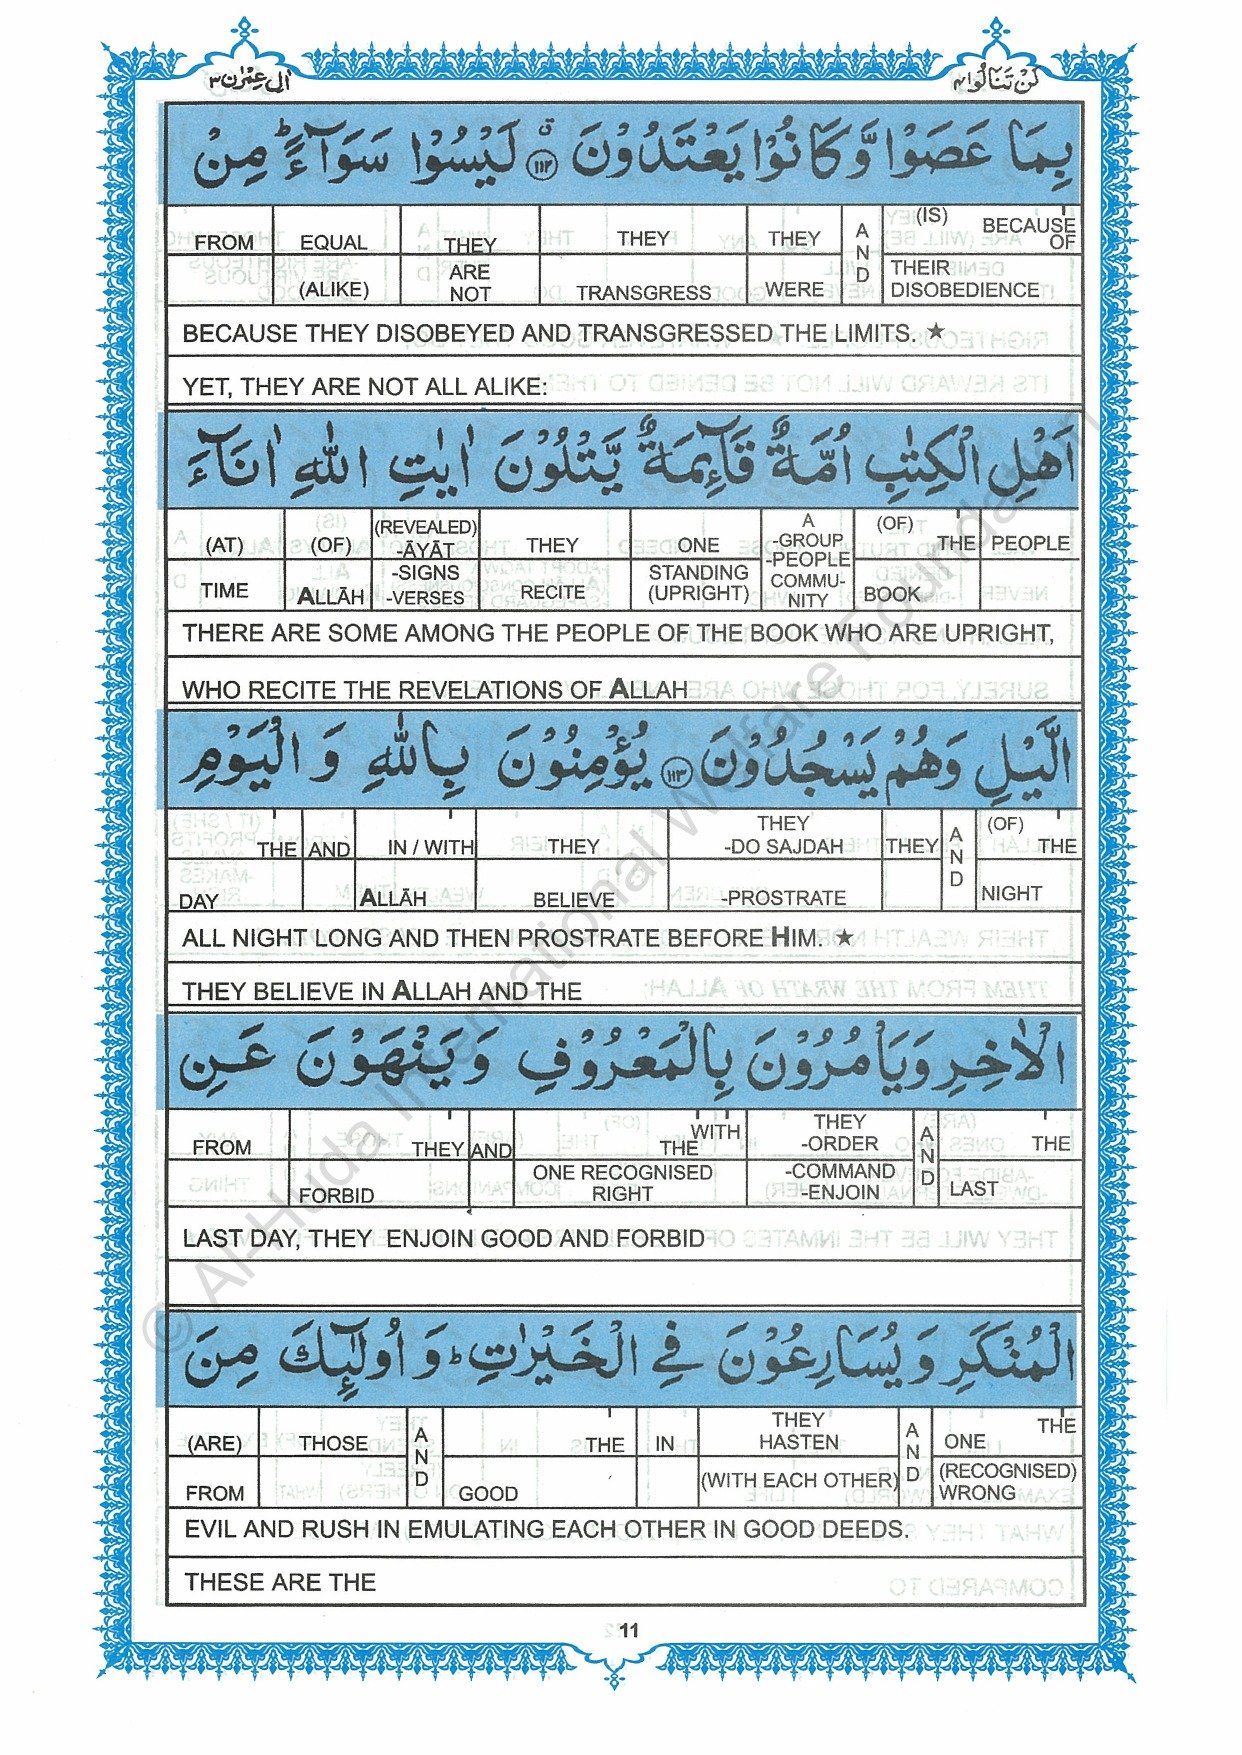 اٰلِ عِمْرٰن ٣
لَنْ تَنَالُوا ٤
بِمَا عَصَوْا وَّكَانُوْا يَعْتَدُوْنَ ١١٢ۙ لَيْسُوْا سَوَآءً ؕ مِنْ
FROM EQUAL THEY THEY THEY AND (IS) BECAUSE OF
(ALIKE) ARE NOT TRANSGRESS WERE THEIR DISOBEDIENCE
BECAUSE THEY DISOBEYED AND TRANSGRESSED THE LIMITS. ★
YET, THEY ARE NOT ALL ALIKE:
اَهْلِ الْكِتٰبِ اُمَّةٌ قَآئِمَةٌ يَّتْلُوْنَ اٰيٰتِ اللّٰهِ اٰنَآءَ
(AT) (OF) (REVEALED) -ĀYĀT THEY ONE A -GROUP -PEOPLE (OF) THE PEOPLE
TIME ALLĀH -SIGNS -VERSES RECITE STANDING (UPRIGHT) COMMU-NITY BOOK
THERE ARE SOME AMONG THE PEOPLE OF THE BOOK WHO ARE UPRIGHT,
WHO RECITE THE REVELATIONS OF ALLAH
الَّيْلِ وَهُمْ يَسْجُدُوْنَ ١١٣ يُؤْمِنُوْنَ بِاللّٰهِ وَ الْيَوْمِ
THE AND IN / WITH THEY THEY -DO SAJDAH THEY AND (OF) THE
DAY ALLĀH BELIEVE -PROSTRATE NIGHT
ALL NIGHT LONG AND THEN PROSTRATE BEFORE HIM. ★
THEY BELIEVE IN ALLAH AND THE
الْاٰخِرِ وَيَاْمُرُوْنَ بِالْمَعْرُوْفِ وَيَنْهَوْنَ عَنِ
FROM THEY AND THE WITH THEY -ORDER AND THE
FORBID ONE RECOGNISED RIGHT -COMMAND -ENJOIN LAST
LAST DAY, THEY ENJOIN GOOD AND FORBID
الْمُنْكَرِ وَ يُسَارِعُوْنَ فِي الْخَيْرٰتِ ؕ وَ اُولٰٓئِكَ مِنَ
(ARE) THOSE AND THE IN THEY HASTEN AND ONE THE
FROM GOOD (WITH EACH OTHER) (RECOGNISED) WRONG
EVIL AND RUSH IN EMULATING EACH OTHER IN GOOD DEEDS.
THESE ARE THE
11
© Al-Huda International Welfare Foundation